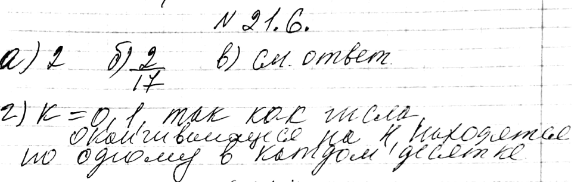 N 21.6.
а) 2 б) 2/17 в) см. ответ
г) K = 0,1, так как числа,
оканчивающиеся на 4, находятся
по одному в каждом десятке